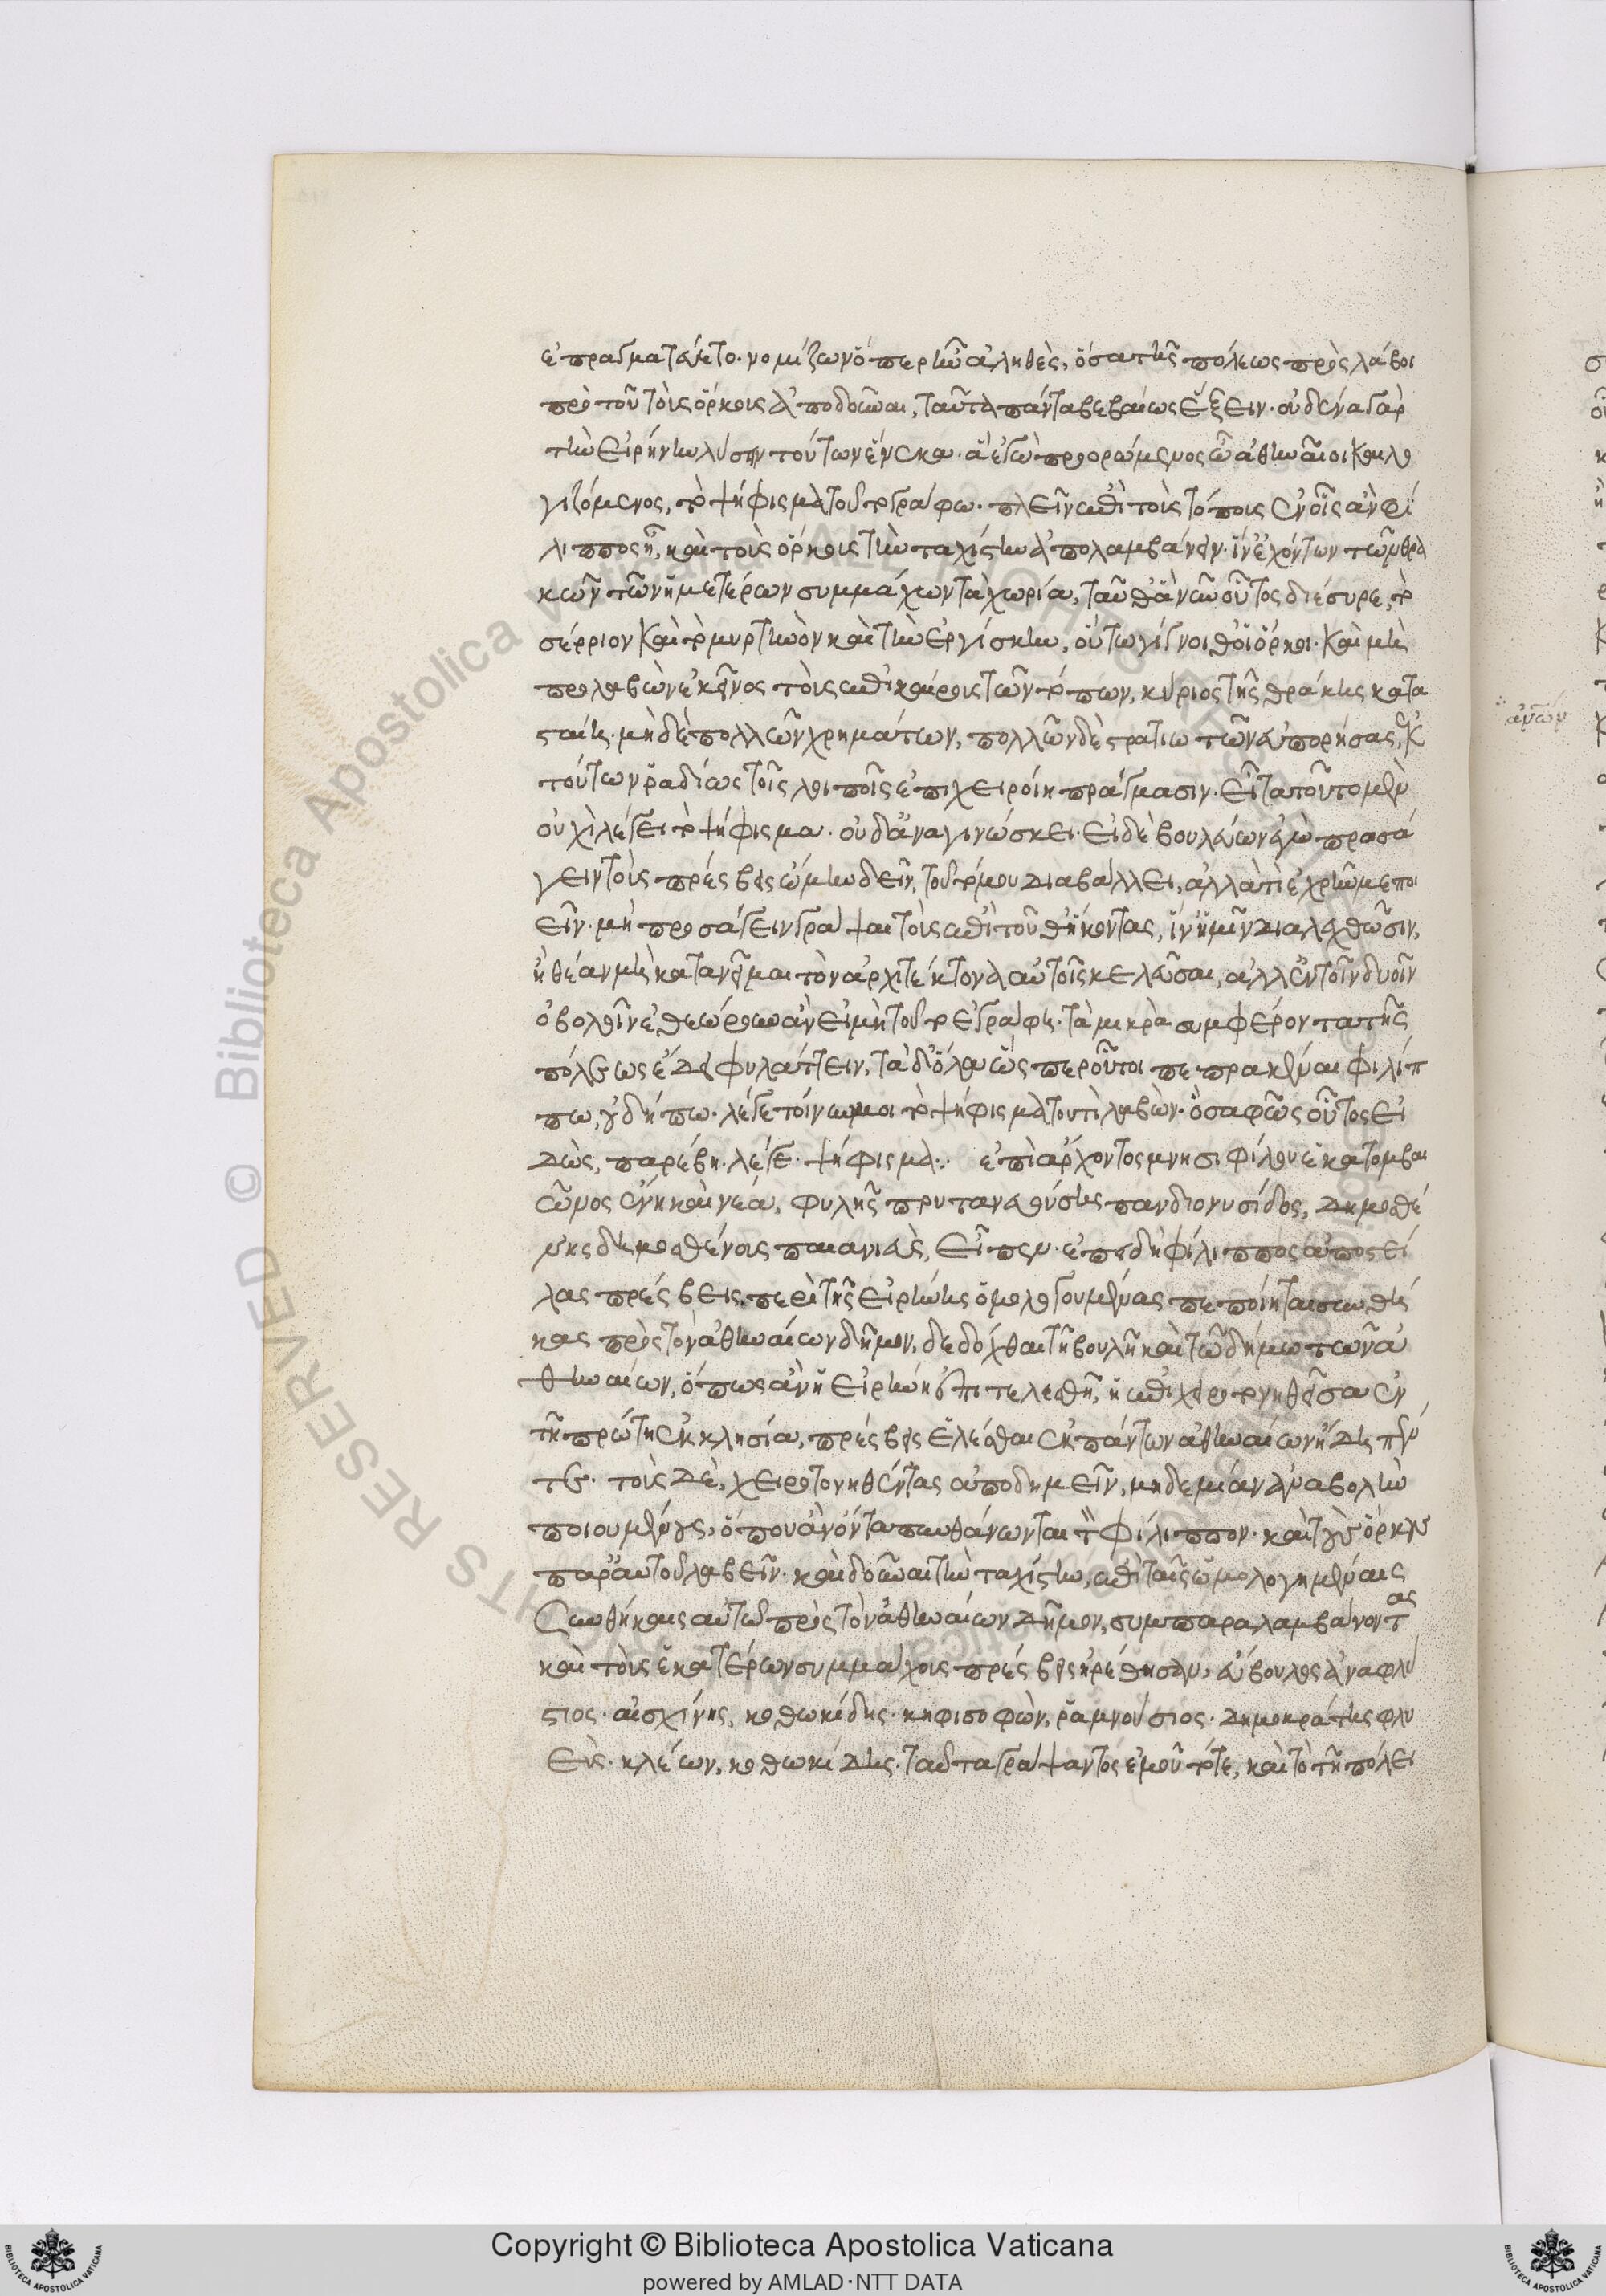 ἐπραγματεύετο· νομίζων ὅπερ ἦν ἀληθὲς, ὅσα τῆς πόλεως προσλάβοι
πρὸ τοῦ τοὺς ὅρκους ἀποδοῦναι, ταῦτα πάντα βεβαίως ἕξειν· οὐδένα γὰρ
τὴν εἰρήνην λύσειν τούτων ἕνεκα· ἃ ἐγὼ προορώμενος ὦ ἀθηναῖοι καὶ λο
γιζόμενος, τὸ ψήφισμα τοῦτο γράφω· πλεῖν ἐπὶ τοὺς τόπους ἐν οἷς ἂν φί
λιππος ᾖ, καὶ τοὺς ὅρκους τὴν ταχίστην ἀπολαμβάνειν· ἵν' ἐχόντων τῶν θρα
κῶν τῶν ἡμετέρων συμμάχων τὰ χωρία, ταῦθ' ἃ νῦν οὗτος διέσυρε, τὸ
σέρριον καὶ τὸ μυρτηνὸν καὶ τὴν ἐργίσκην, οὕτω γίγνοινθ' οἱ ὅρκοι· καὶ μὴ
προλαβὼν ἐκεῖνος τοὺς ἐπικαίρους τῶν τόπων, κύριος τῆς θράκης κατα
σταίη· μηδὲ πολλῶν χρημάτων, πολλῶν δὲ στρατιωτῶν εὐπορήσας, ἐκ
τούτων ῥαδίως τοῖς λοιποῖς ἐπιχειροίη πράγμασιν· εἶτα τοῦτο μὲν
οὐχὶ λέγει τὸ ψήφισμα· οὐδ' ἀναγινώσκει· εἰ δὲ βουλεύων ἐγὼ προσά
γειν τοὺς πρέσβεις ᾤμην δεῖν, τοῦτό μου διαβάλλει, ἀλλὰ τί ἐχρῆν με ποι
εῖν· μὴ προσάγειν γράψαι τοὺς ἐπὶ τοῦθ' ἥκοντας, ἵν' ἡμῖν διαλεχθῶσιν,
ἢ θέαν μὴ κατανεῖμαι τὸν ἀρχιτέκτονα αὐτοῖς κελεῦσαι, ἀλλ' ἐν τοῖν δυοῖν
ὀβολοῖν ἐθεώρουν ἂν εἰ μὴ τοῦτο ἐγράφη· τὰ μικρὰ συμφέροντα τῆς
πόλεως ἔδει φυλάττειν, τὰ δ' ὅλα ὥσπερ οὗτοι πεπρακέναι φιλίπ
πω, οὐ δήπω· λέγε τοίνυν μοι τὸ ψήφισμα τουτὶ λαβὼν· ὃ σαφῶς οὗτος εἰ
δὼς, παρέβη· λέγε· ψήφισμα·: ἐπὶ ἄρχοντος μνησιφίλου ἑκατομβαι
ῶνος ἕνη καὶ νέα, φυλῆς πρυτανευούσης πανδιονυσίδος, δημοσθέ
νης δημοσθένους παιανιεὺς, εἶπεν· ἐπειδὴ φίλιππος ἀποστεί
λας πρέσβεις, περὶ τῆς εἰρήνης ὁμολογουμένας πεποίηται συνθή
κας πρὸς τὸν ἀθηναίων δῆμον, δεδόχθαι τῆ βουλῆ καὶ τῶ δήμω τῶν ἀ
θηναίων, ὅπως ἂν ἡ εἰρήνη ἐπιτελεσθῆ, ἡ ἐπιχειροτονηθεῖσα ἐν
τῆ πρώτη ἐκκλησία, πρέσβεις ἑλέσθαι ἐκ πάντων ἀθηναίων ἤδη πέν
τε· τοὺς δὲ, χειροτονηθέντας ἀποδημεῖν, μηδεμίαν ἀναβολὴν
ποιουμένους, ὅπου ἂν ὄντα πυνθάνωνται τὸν φίλιππον· καὶ τοὺς ὅρκους
παρ' αὐτοῦ λαβεῖν· καὶ δοῦναι τὴν ταχίστην, ἐπὶ ταῖς ὡμολογημέναις
συνθήκαις αὐτῶ πρὸς τὸν ἀθηναίων δῆμον, συμπαραλαμβάνοντας
καὶ τοὺς ἑκατέρων συμμάχους πρέσβεις ἡρέθησαν, εὔβουλος ἀναφλύ
στιος· αἰσχίνης, κοθωκίδης· κηφισοφῶν, ῥαμνούσιος· δημοκράτης φλυ
εύς· κλέων, κοθωκίδης· ταῦτα γράψαντος ἐμοῦ τότε, καὶ τὸ τῆ πόλει
αὐτῶν
Copyright © Biblioteca Apostolica Vaticana
powered by AMLAD·NTT DATA